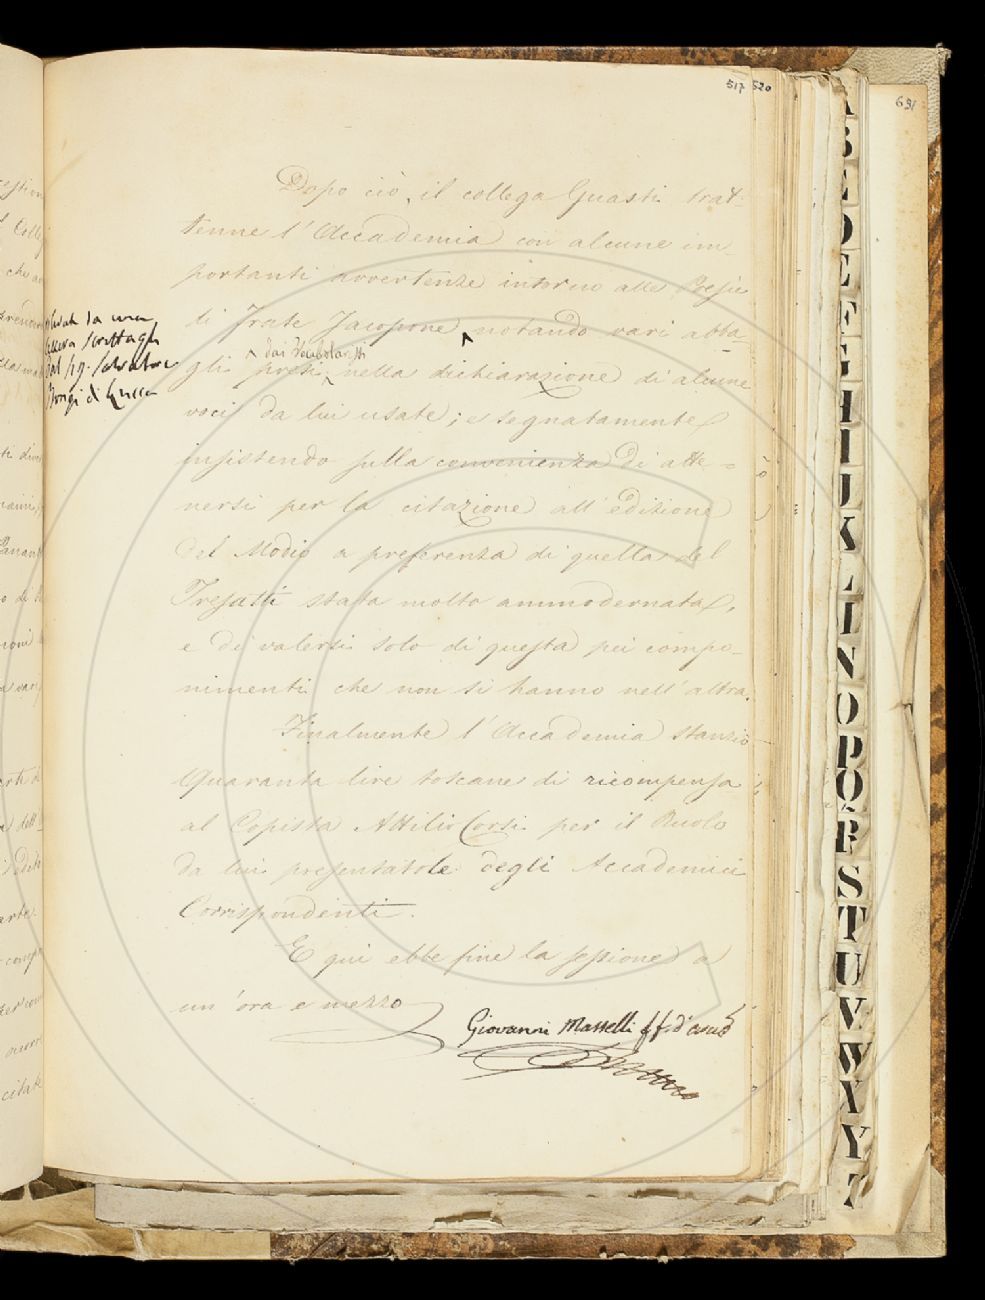 517 520
691
Dopo ciò, il collega Guasti trat-
tenne l'Accademia con alcune im-
portanti avvertenze intorno alle Poesie
di Frate Jacopone notando vari abba-
dai Vocabolaristi
gli presi nella dichiarazione di alcune
voci da lui usate; e segnatamente
insistendo sulla convenienza di atte-
nersi per la citazione all'edizione
del Modio a preferenza di quella del
Tresatti stata molto ammodernata,
e di valersi solo di questa pei compo-
nimenti che non si hanno nell'altra.
Finalmente l'Accademia stanziò
Quaranta lire toscane di ricompensa
al Copista Attilio Corsi per il Ruolo
da lui presentatole degli Accademici
Corrispondenti.
E qui ebbe fine la sessione a
un'ora e mezzo
Giovanni Masselli ff. d'
da una
lettera scrittagli
dal sig. Salvatore
Bongi di Lucca
B
C
D
E
F
G
H
I
J
K
L
N
O
P
Q
R
S
T
U
V
W
X
Y
Z